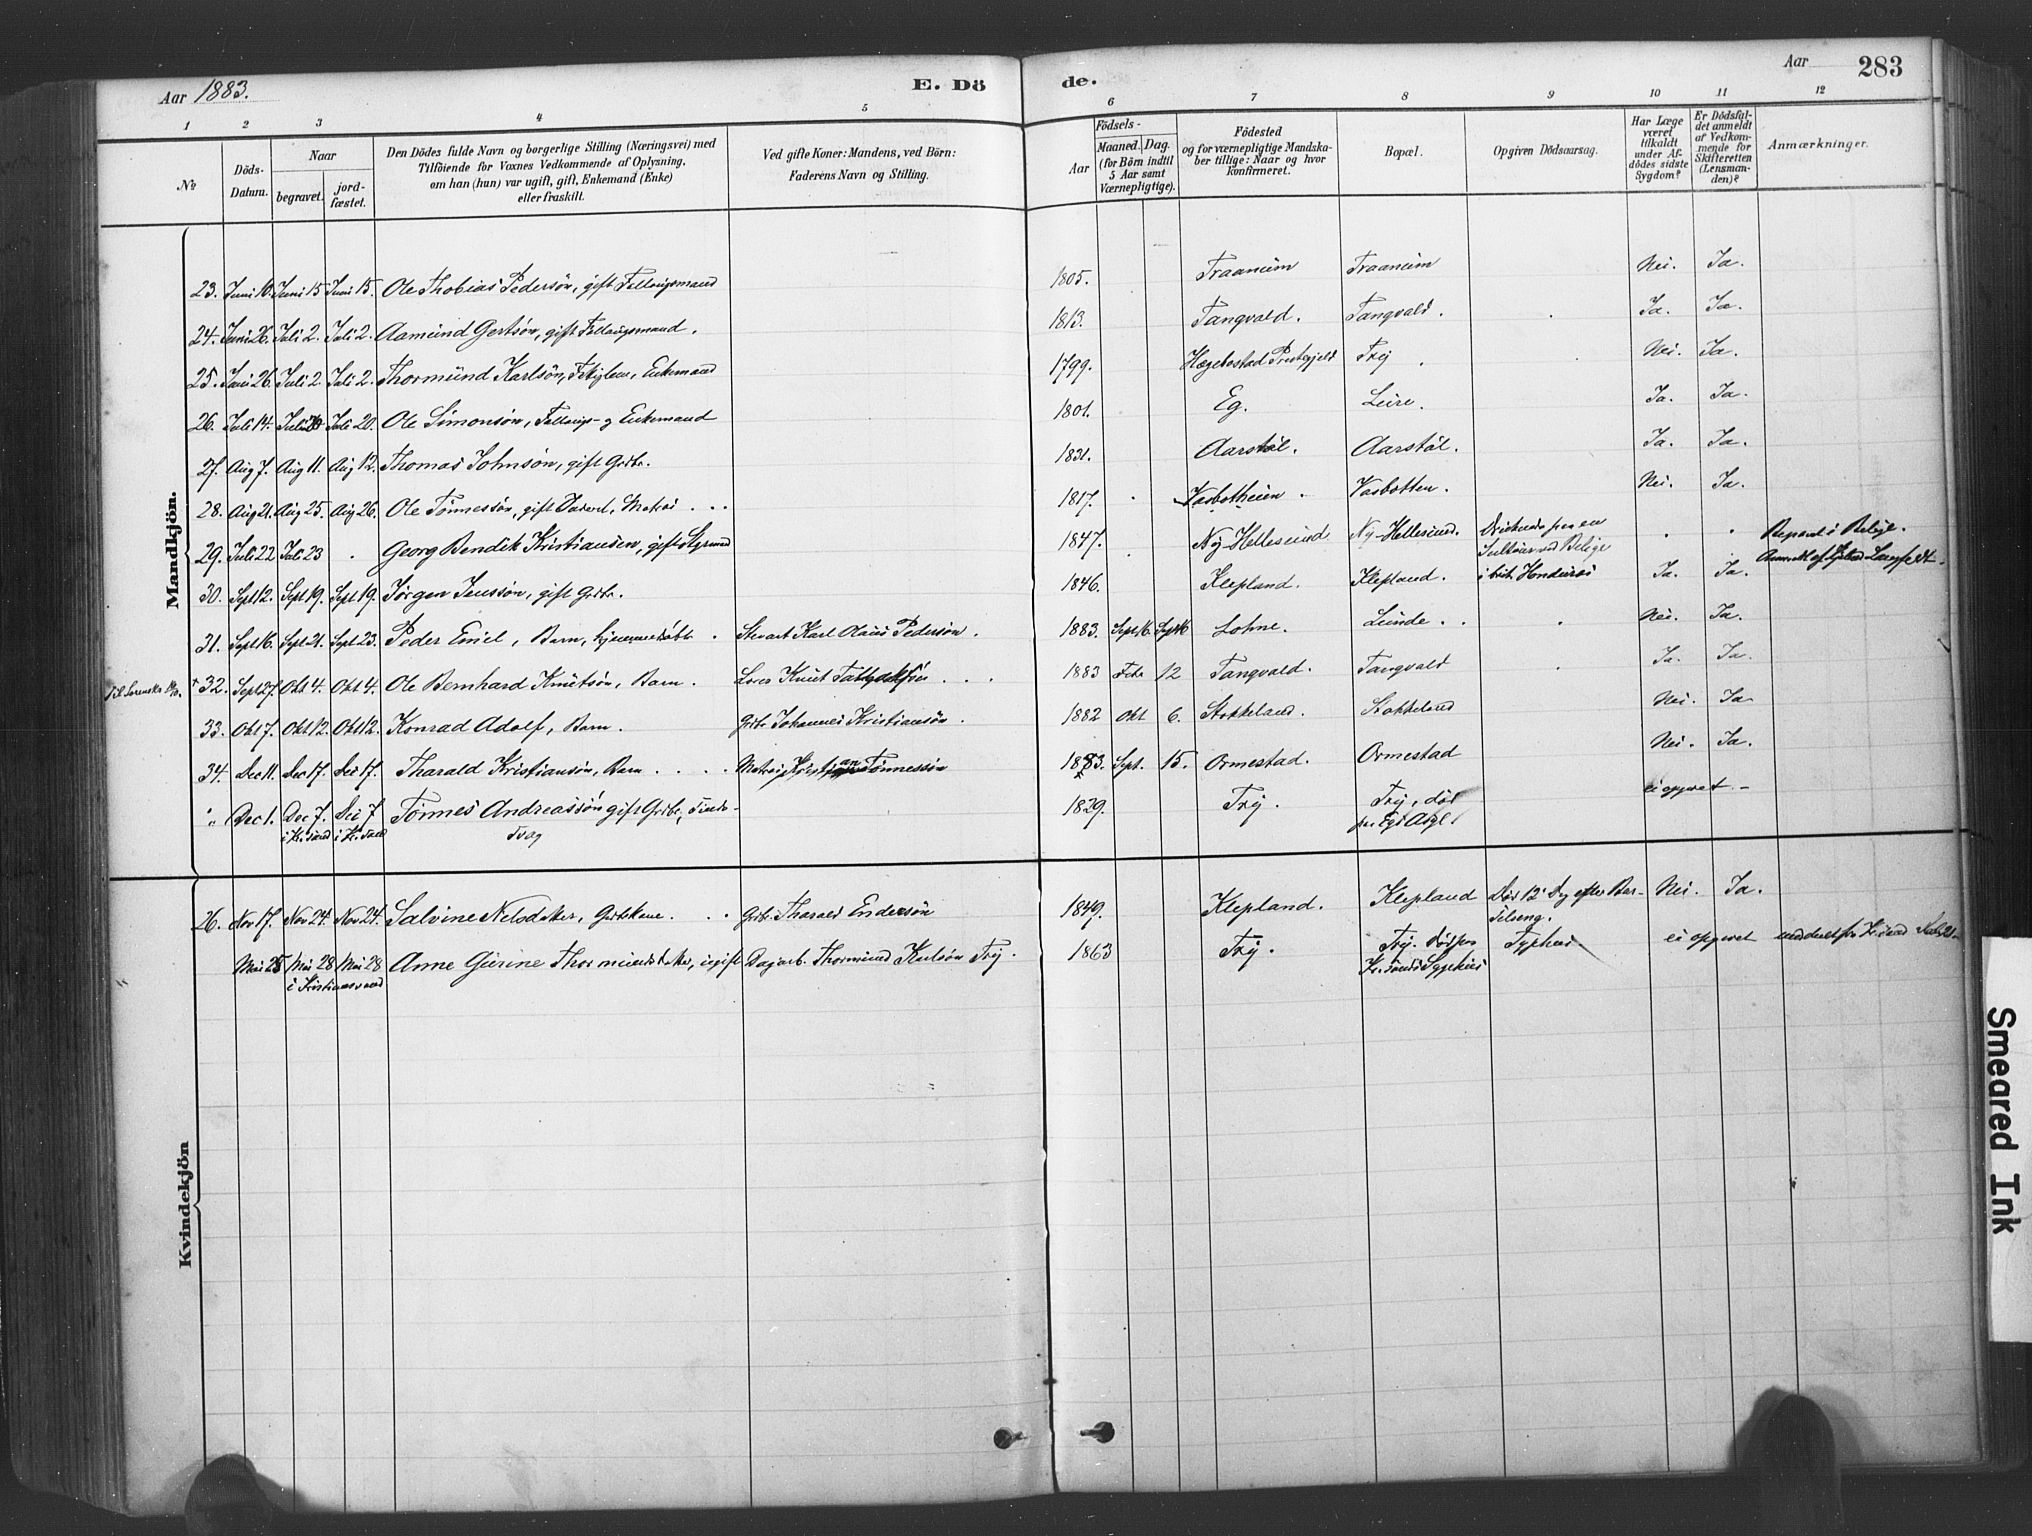 Aar 1883. E. Dö de. Aar 283
1 2 3 4 5 6 7 8 9 10 11 12
№
Döds-Datum.
Naar
begravet.
jordfæstet.
Den Dödes fulde Navn og borgerlige Stilling (Næringsvei) med
Tilföiende for Voxnes Vedkommende af Oplysning,
om han (hun) var ugift, gift, Enkemand (Enke)
eller fraskilt.
Ved gifte Koner: Mandens, ved Börn:
Faderens Navn og Stilling.
Födsels-
Aar
Maaned. Dag.
(for Börn indtil
5 Aar samt
Værnepligtige).
Födested
og for værnepligtige Mandska-
ber tillige: Naar og hvor
konfirmeret.
Bopæl.
Opgiven Dödsaarsag.
Har Læge
været
tilkaldt
under Af-
dödes sidste
Sygdom?
Er Dödsfal-
det anmeldt
af Vedkom-
mende for
Skifteretten
(Lensman-
den)?
Anmærkninger.
Mandkjön.
23. Juni 10. Juni 15 Juni 15. Ole Thobias Pedersön, gift 1805. Traaneim Traaneim Nei. Ja.
24. Juni 26. Juli 2. Juli 2. Aamund Gertsön, gift 1813. Tangvald. Tangvald. Ja. Ja.
25. Juni 26. Juli 2. Juli 2. Thormund Karlsön, Enkemand 1799. Hægebostad Prestgjeld Try Nei. Ja.
26. Juli 14. Juli 20 Juli 20. Ole Simonsön, Enkemand 1801. Eg. Leire. Ja. Ja.
27. Aug 7. Aug 11. Aug 12. Thomas Johnsön, gift Grdbr. 1831. Aarstöl. Aarstöl. Ja. Ja.
28. Aug 21. Aug 25. Aug 26. Ole Tönnessön, gift Matros 1817. Vasbotten. Nei. Ja.
29. Juli 22 Juli 23 Georg Bendik Kristiansen, gift Styrmand 1847. Ny-Hellesund Ny-Hellesund. Belize Begravet i Belize.
30. Sept 12. Sept 19. Sept 19. Jörgen Jenssön, gift Grdbr. 1846. Klepland. Klepland. i brit. Honduras Ja. Ja.
31. Sept 16. Sept 21. Sept 23. Peder Emil, Barn, hjemmedöbt. Karl Olaus Pedersön. 1883. Sept 16. Sept 16 Lohne. Lunde. Nei. Ja.
32. Sept 27. Okt 4. Okt 4. Ole Bernhard Knutsön, Barn. Knut 1883 Febr 12 Tangvald. Tangvald Ja. Ja.
33. Okt 7. Okt 12. Okt 12. Konrad Adolf, Barn. Grdbr. Johannes Kristiansön. 1882 Okt 6. Stokkeland. Stokkeland Nei. Ja
34. Dec 11. Dec 17. Dec 17. Tharald Kristiansön, Barn Matros Kristian Tönnessön 1883. Sept. 15. Ormestad. Ormestad Nei. Ja.
" Dec 1. Dec 7. Dec 7 Tönnes Andreassön gift Grdbr., Sinds- 1829. Try. Try, död ei opgivet
i Kr.sand i Kr.sand svag paa Egs Asyl
Kvindekjön
26. Nov 17. Nov 24. Nov 24. Salvine Nelsdatter, Grdbkone. Grdbr Tharald Endersön 1849. Klepland. Klepland Död 12 Dg efter Bar- Nei. Ja.
selseng.
" Mai 25 Mai 28 Mai 28 Anne Gurine Thormundsdatter, ugift Dagarb. Thormund Karlsön Try. 1863 Try. Try. Död paa Typhus ei opgivet
i Kristianssand
Smeared Ink